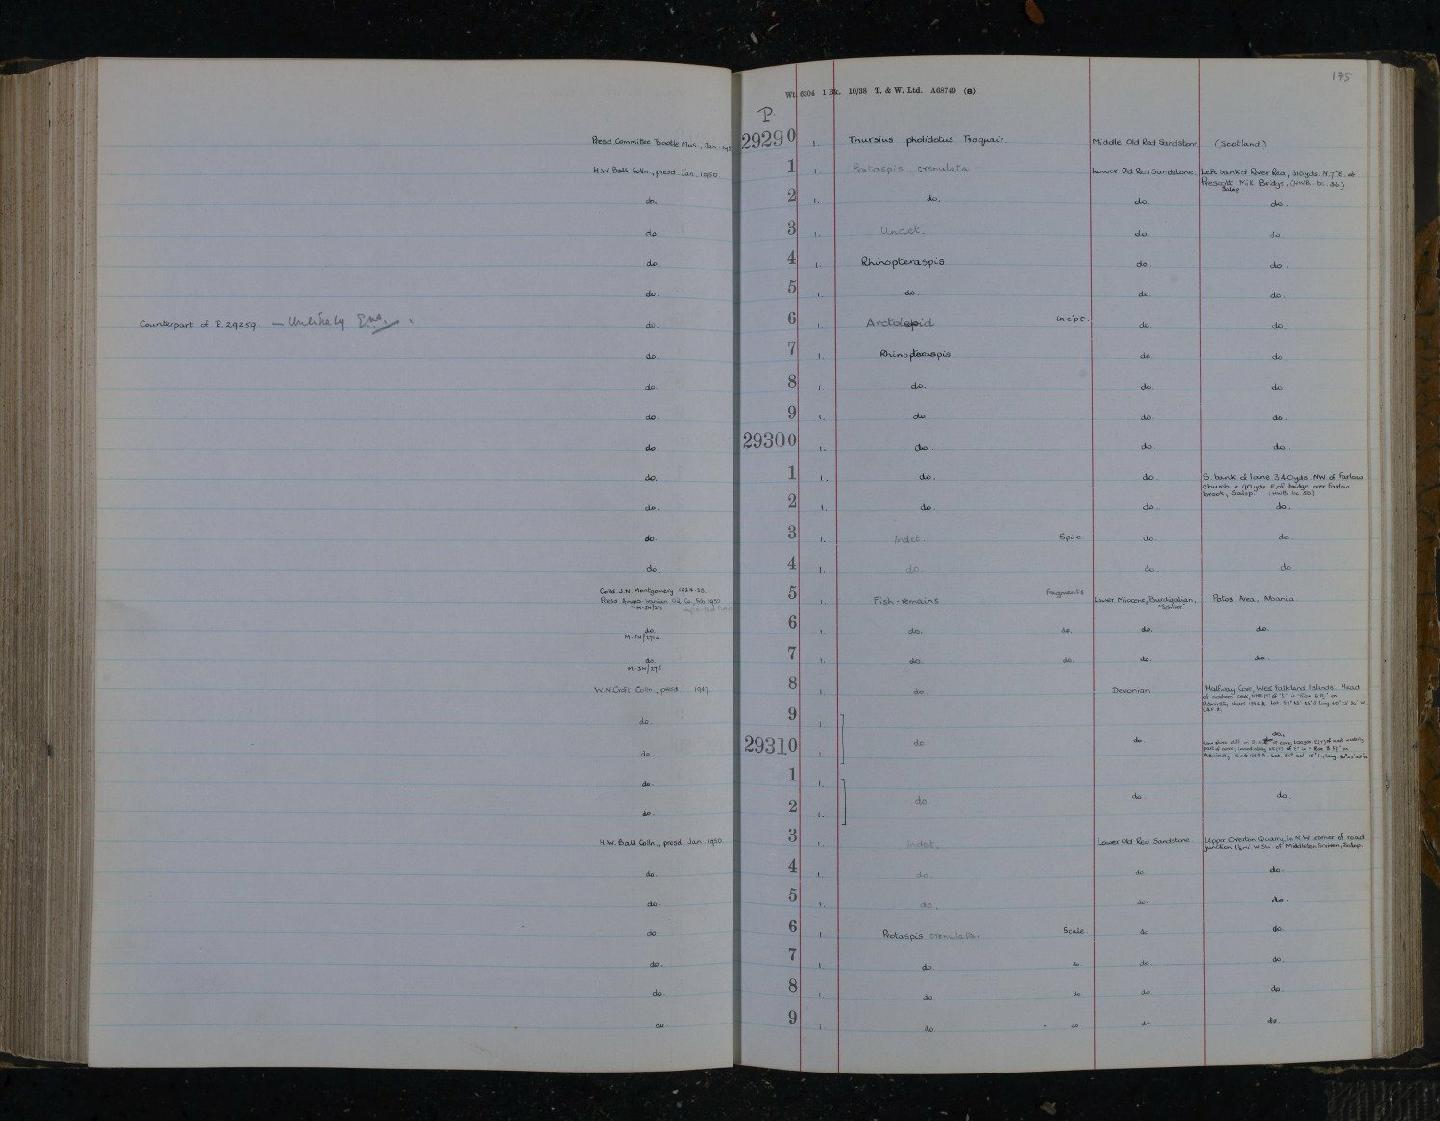 175
Wt. 6304 1 Bk. 10/38 T. & W. Ltd. A68749 (8)
P.
Presd. Committee Bootle Mus., Jan. 29290 1. Thursius pholidotus Traquair. Middle Old Red Sandstone (Scotland)
H.W. Ball Colln., presd. Jan. 1950. 1 1. Protaspis crenulata Lower Old Red Sandstone. Left bank of River Rea, 310yds. N.7°E. of
Prescott Mill Bridge, (HWB. loc. 36)
Salop
do. 2 1. do. do. do.
do. 3 1. Indet. do. do.
do. 4 1. Rhinopteraspis do. do.
do. 5 1. do. do. do.
Counterpart of P.29259 — Unlikely do. 6 1. Arctolepid do. do.
do. 7 1. Rhinopteraspis do. do.
do. 8 1. do. do. do.
do. 9 1. do do. do.
do. 29300 1. do. do. do.
do. 1 1. do. do. S. bank of lane 340yds NW of Farlow
Church brook, Salop.
do. 2 1. do. do. do.
do. 3 1. Indet. Spine do do.
do. 4 1. do. do. do
Colld. J.N. Montgomery
Presd. Anglo-Iranian Oil Co., Feb 1950 5 1. Fish-remains Fragments Lower Miocene, Burdigalian, Patos Area, Albania.
"Schlier"
do. 6 1. do. do. do. do.
do. 7 1. do. do. do. do.
W.N. Croft Colln., presd. 1947. 8 1. do. Devonian Halfway Cove, West Falkland Islands. Head
do. 9 1.
do. 29310 do do. do.
do. 1 1.
do. 2 1. do do. do.
H.W. Ball Colln., presd. Jan. 1950. 3 1. Indet. Lower Old Red Sandstone. Upper Overton Quarry, in N.W. corner of road
junction WSW. of Middleton Scriven, Salop.
do. 4 1. do. do. do.
do. 5 1. do. do. do.
do 6 1. Protaspis crenulata. Scale do do.
do. 7 1. do. do do. do.
do. 8 1. do. do do. do.
do 9 1. do. do do do.